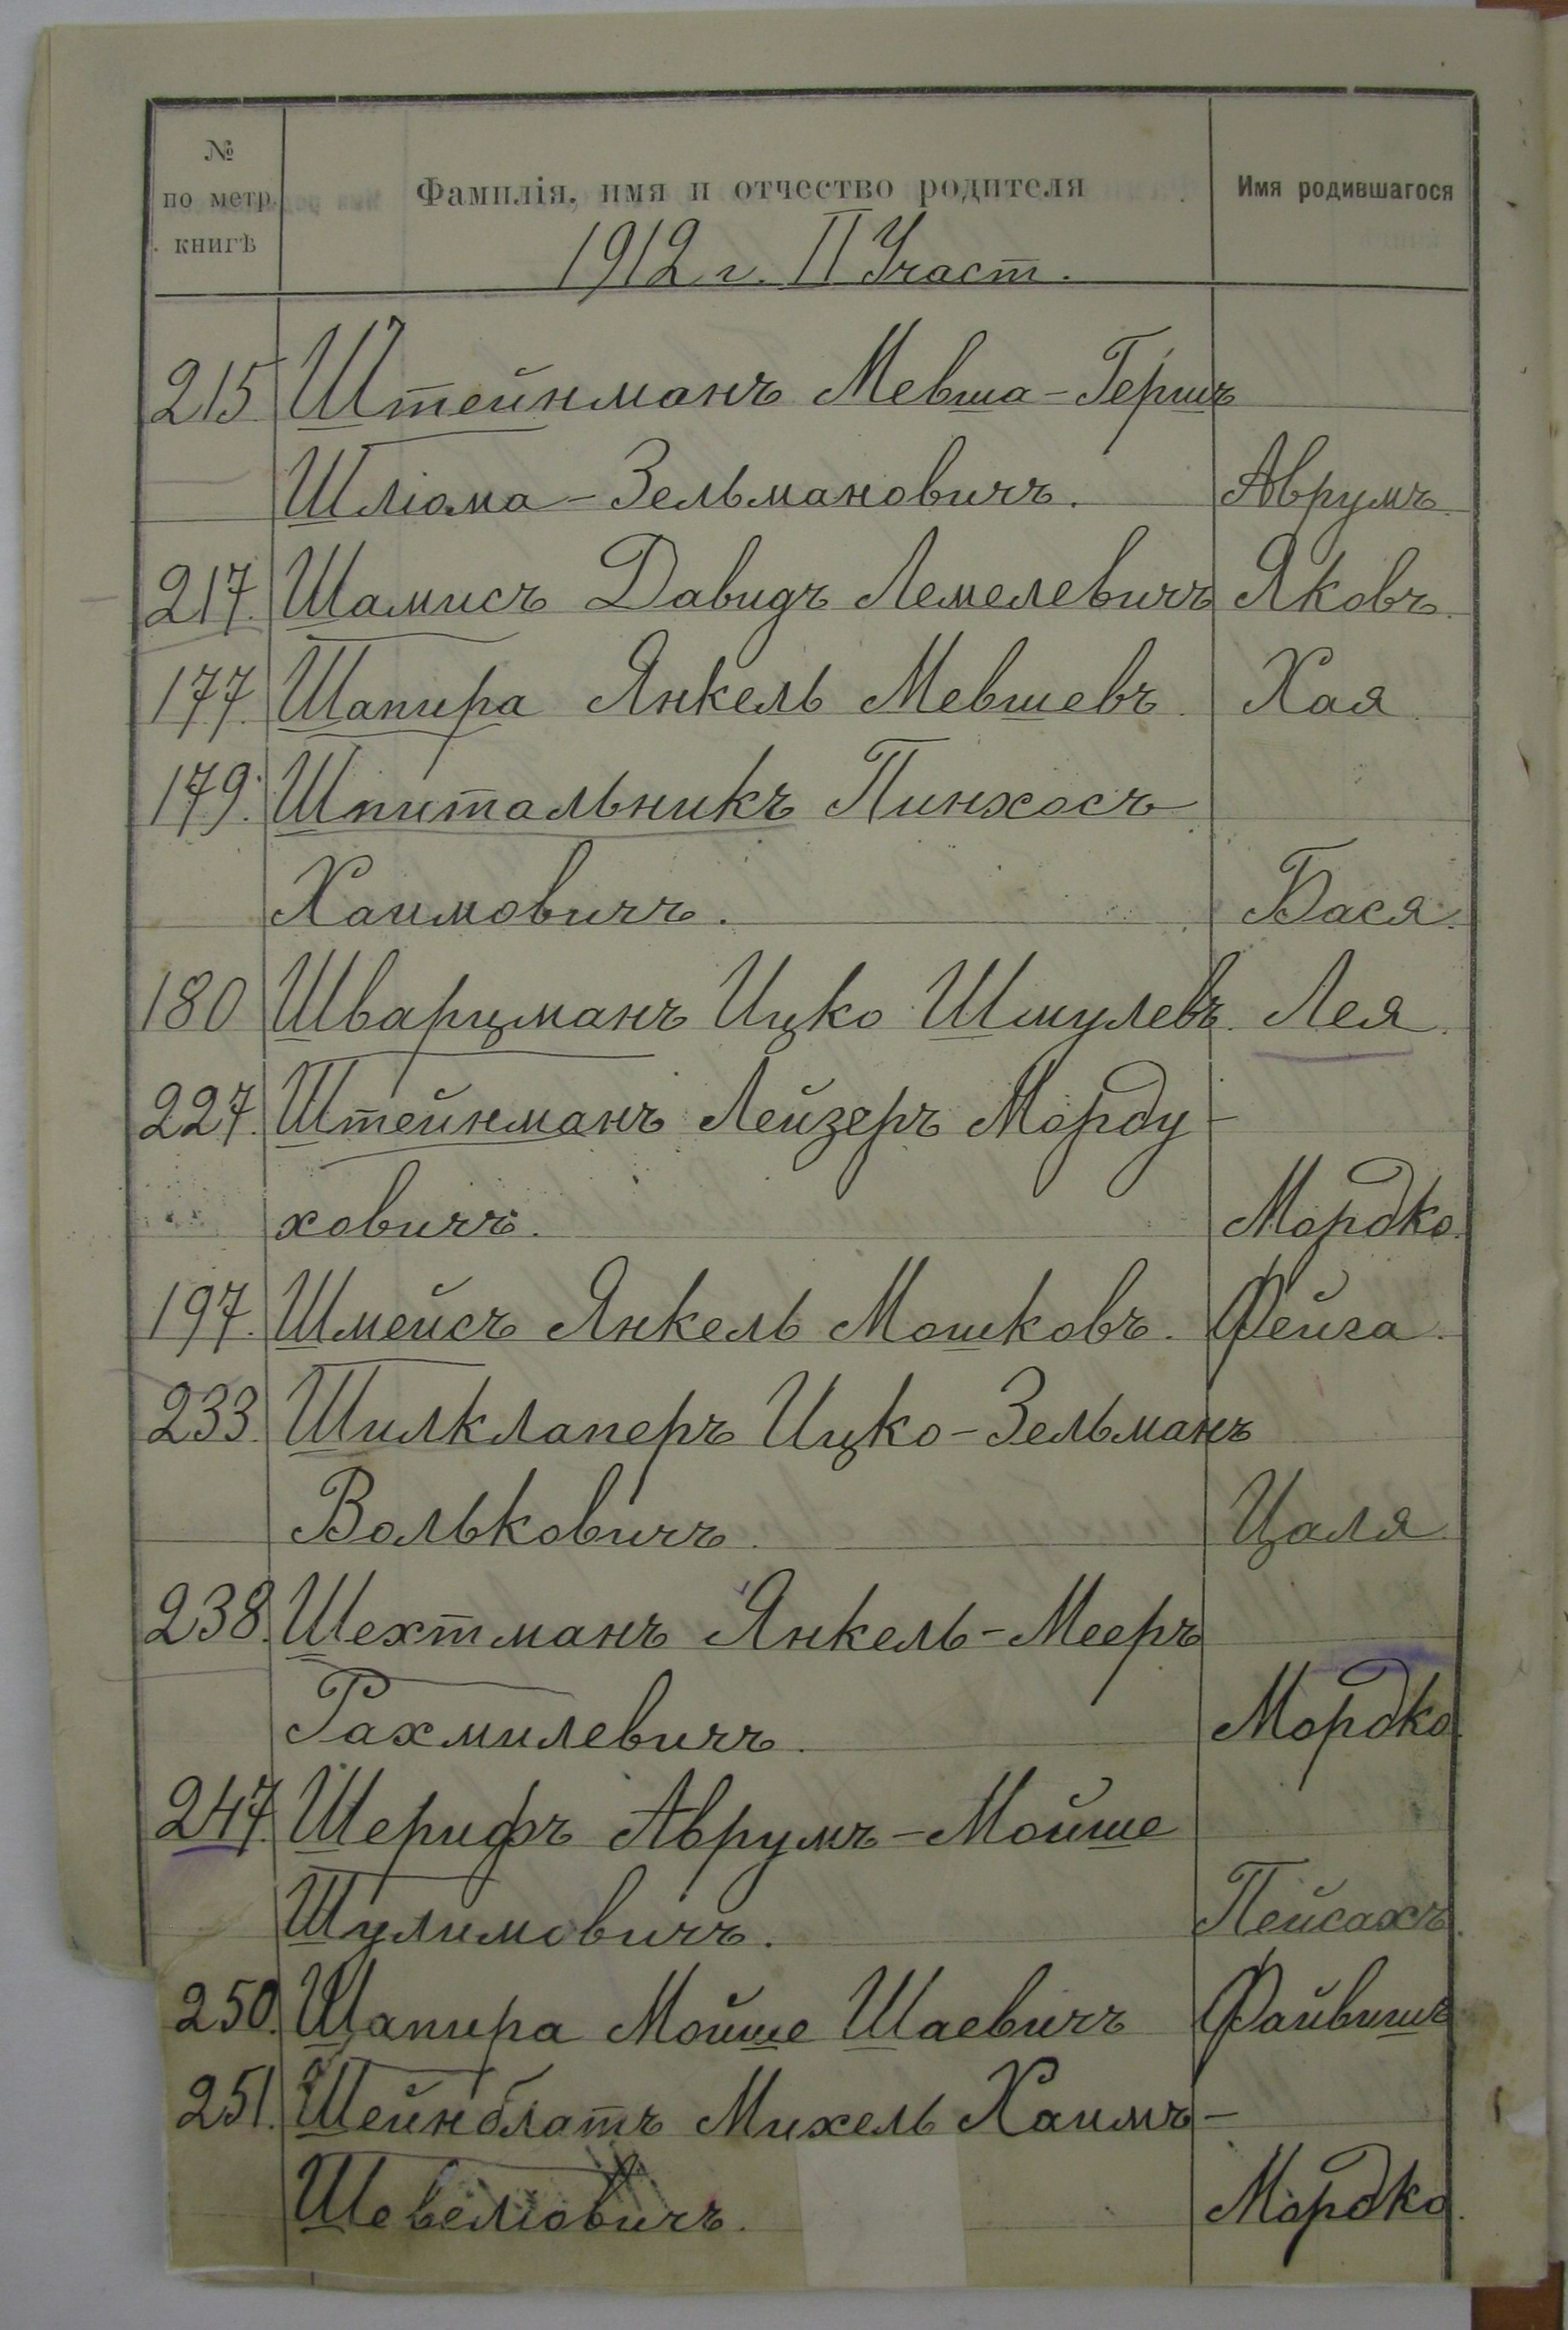 № по метр. книгѣ
Фамилія, имя и отчество родителя
Имя родившагося
1912 г. II Участ.
215 Штейнманъ Мевша-Гершъ
Шліома-Зельмановичъ. Аврумъ.
217. Шамисъ Давидъ Лемелевичъ Яковъ.
177. Шапира Янкель Мевшевъ. Хая.
179. Шпитальникъ Пинхосъ
Хаимовичъ. Бася.
180 Шварцманъ Ицко Шмулевъ. Лея.
227. Штейнманъ Лейзеръ Морду-
ховичъ. Мордко.
197. Шмейсъ Янкель Мошковъ. Фейга.
233. Шилклаперъ Ицко-Зельманъ
Вольковичъ. Цаля.
238. Шехтманъ Янкель-Мееръ
Рахмилевичъ. Мордко.
247. Шерифъ Аврумъ-Мойше
Шулимовичъ. Пейсахъ.
250. Шапира Мойше Шаевичъ Файвишъ
251. Шейнблатъ Михель Хаимъ-
Шевеліовичъ. Мордко.